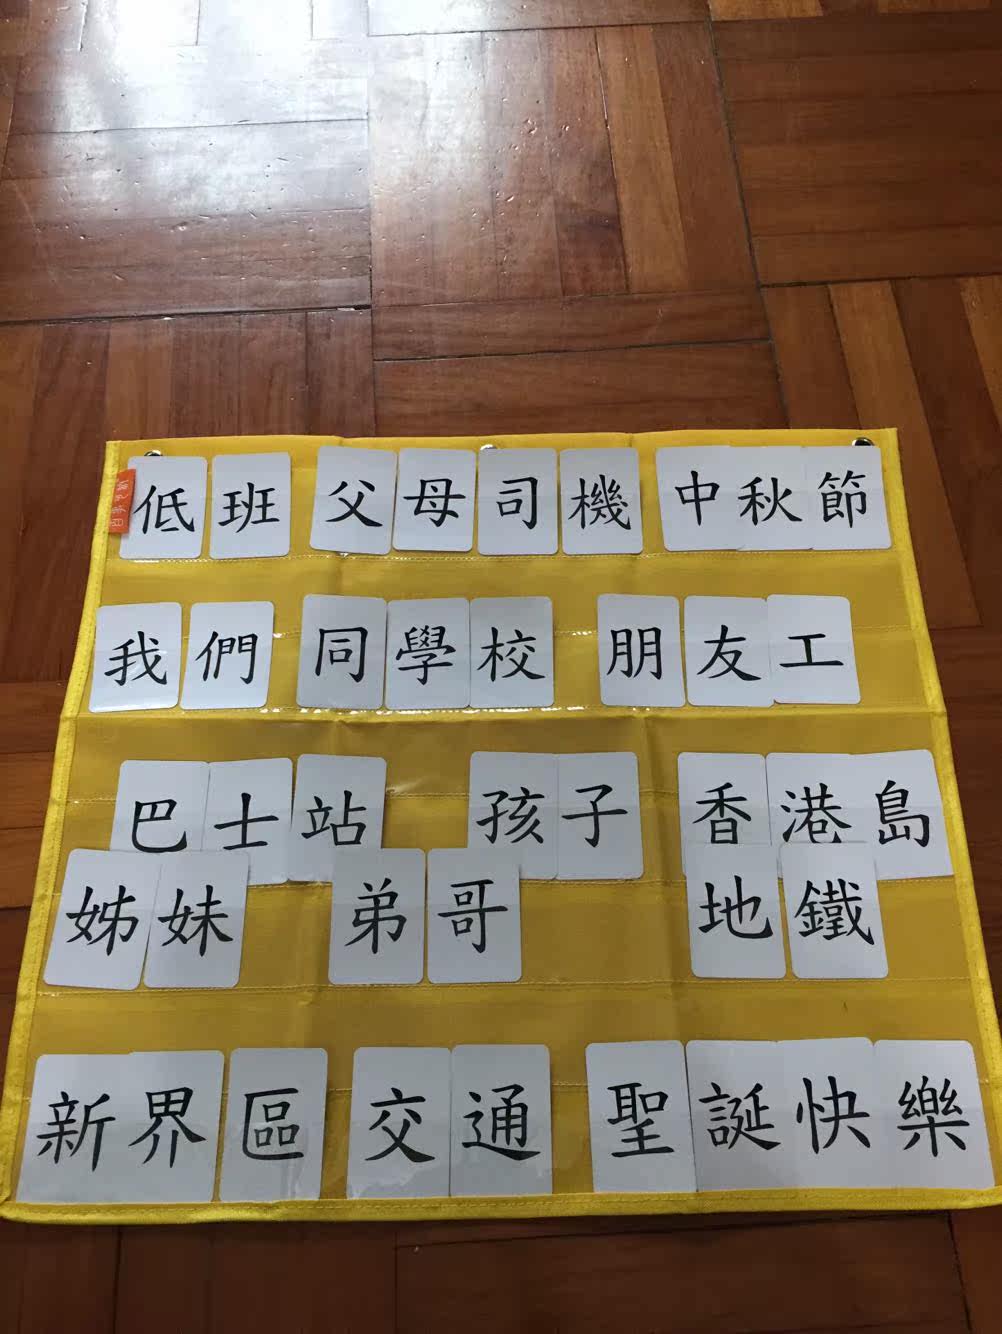 低班 父母司機 中秋節
我們 同學校 朋友工
巴士站 孩子 香港島
姊妹 弟哥 地鐵
新界區 交通 聖誕快樂